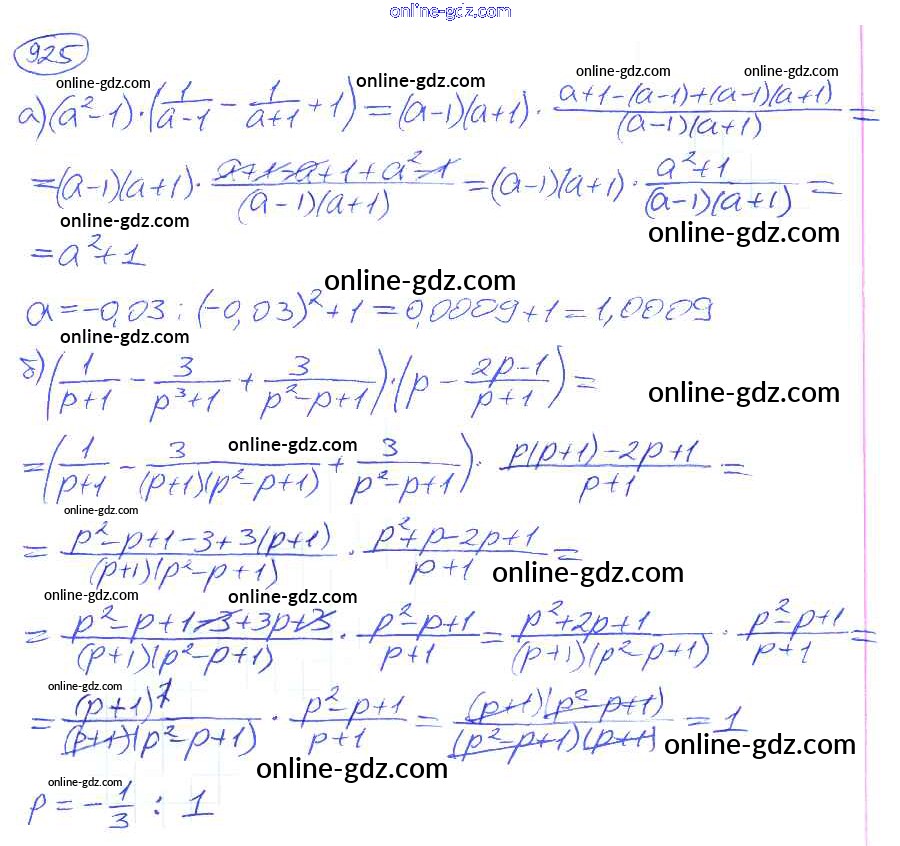 online-gdz.com
925
online-gdz.com online-gdz.com online-gdz.com online-gdz.com
а) (a²-1)·(1/(a-1) - 1/(a+1) + 1) = (a-1)(a+1) · (a+1-(a-1)+(a-1)(a+1))/((a-1)(a+1)) =
= (a-1)(a+1) · (a+1-a+1+a²-1)/((a-1)(a+1)) = (a-1)(a+1) · (a²+1)/((a-1)(a+1)) =
online-gdz.com online-gdz.com
= a²+1
online-gdz.com
a = -0,03 : (-0,03)²+1 = 0,0009+1 = 1,0009
online-gdz.com
б) (1/(p+1) - 3/(p³+1) + 3/(p²-p+1))·(p - (2p-1)/(p+1)) =
online-gdz.com
online-gdz.com
= (1/(p+1) - 3/((p+1)(p²-p+1)) + 3/(p²-p+1)) · (p(p+1)-2p+1)/(p+1) =
online-gdz.com
= (p²-p+1-3+3(p+1))/((p+1)(p²-p+1)) · (p²+p-2p+1)/(p+1) =
online-gdz.com
online-gdz.com online-gdz.com
= (p²-p+1-3+3p+3)/((p+1)(p²-p+1)) · (p²-p+1)/(p+1) = (p²+2p+1)/((p+1)(p²-p+1)) · (p²-p+1)/(p+1) =
online-gdz.com
= (p+1)²/((p+1)(p²-p+1)) · (p²-p+1)/(p+1) = ((p+1)(p²-p+1))/((p²-p+1)(p+1)) = 1
online-gdz.com
online-gdz.com
online-gdz.com
p = -1/3 : 1